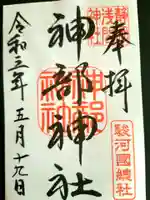 奉拝
静岡浅間神社
神部神社
駿河國總社
令和三年五月十九日